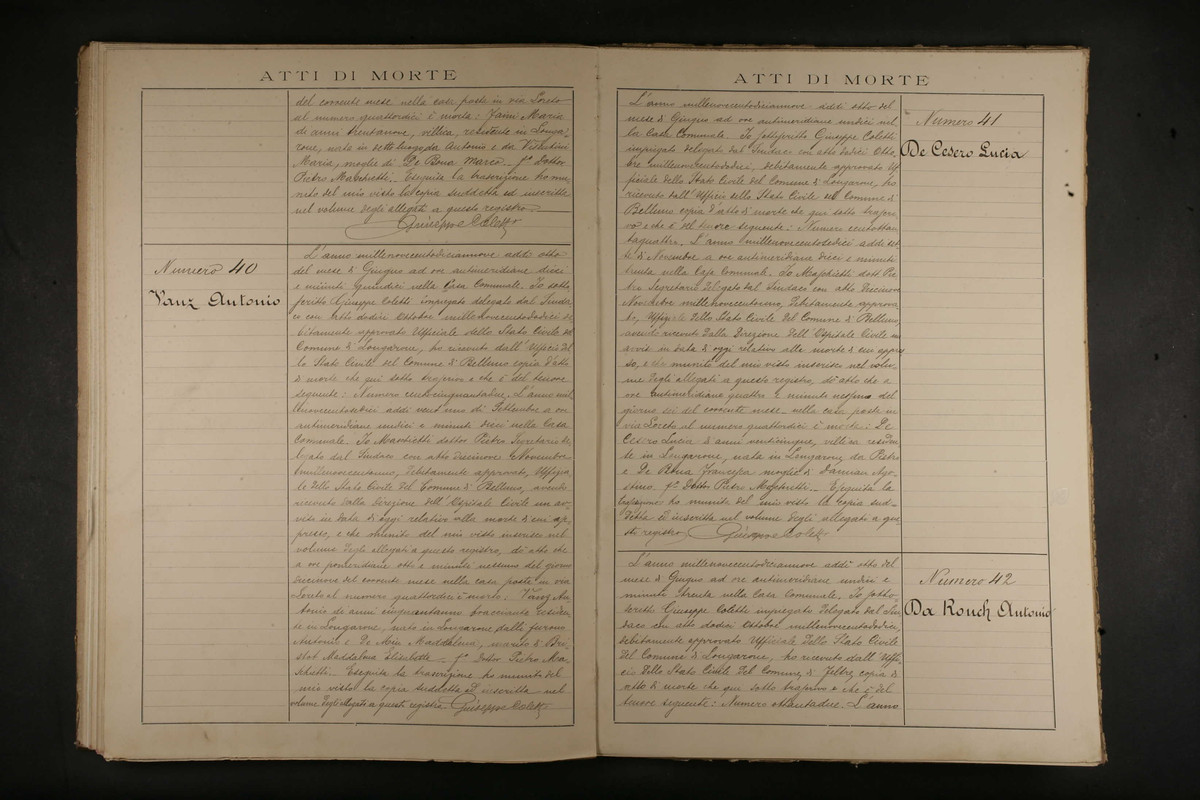 ATTI DI MORTE
del corrente mese nella casa posta in via Loreto
al numero quattordici è morta: Fanni Maria
di anni trentanove, villica, residente in Longa-
rone, nata in detto luogo da Antonio e da
Maria, moglie di De Bona Marco. f.° Dottor
Pietro Maschietti. Eseguita la trascrizione ho mu-
nito del mio visto la copia suddetta ed inscritta
nel volume degli allegati a questo registro
Giuseppe Coletti
Numero 40
Vanz Antonio
L'anno millenovecentodiciannove addì otto
del mese di Giugno ad ore antimeridiane dieci
e minuti quindici nella Casa Comunale. Io sotto-
scritto Giuseppe Coletti impiegato delegato dal Sinda-
co con atto dodici Ottobre millenovecentododici de-
bitamente approvato Ufficiale dello Stato Civile del
Comune di Longarone, ho ricevuto dall'Ufficio del-
lo Stato Civile del Comune di Belluno copia d'atto
di morte che qui sotto trascrivo e che è del tenore
seguente: Numero centocinquantadue. L'anno mil-
lenovecentosedici addì vent'uno di Settembre a ore
antimeridiane undici e minute dieci nella Casa
Comunale. Io Maschietti dottor Pietro Segretario de-
legato dal Sindaco con atto diecinove Novembre
millenovecentouno, debitamente approvato, Ufficia-
le dello Stato Civile del Comune di Belluno, avendo
ricevuto dalla Direzione dell'Ospitale Civile un av-
viso in data di oggi relativo alla morte di cui ap-
presso, e che munito del mio visto inserisco nel
volume degli allegati a questo registro, dò atto che
a ore pomeridiane otto e minute nessuno del giorno
diecinove del corrente mese nella casa posta in via
Loreto al numero quattordici è morto: Vanz An-
tonio di anni cinquantanno bracciante residen-
te in Longarone, nato in Longarone dalli furono
Antonio e De Min Maddalena, marito di Bri-
stot Maddalena Elisabetta. f.° Dottor Pietro Ma-
schietti. Eseguita la trascrizione ho munito del
mio visto la copia suddetta ed inscritta nel
volume degli allegati a questo registro. Giuseppe Coletti
ATTI DI MORTE
L'anno millenovecentodiciannove addì otto del
mese di Giugno ad ore antimeridiane undici nel-
la Casa Comunale. Io sottoscritto Giuseppe Coletti
impiegato delegato dal Sindaco con atto dodici Otto-
bre millenovecentododici, debitamente approvato Uf-
ficiale dello Stato Civile del Comune di Longarone, ho
ricevuto dall'Ufficio dello Stato Civile del Comune di
Belluno copia d'atto di morte che qui sotto trascri-
vo e che è del tenore seguente: Numero centottan-
taquattro. L'anno millenovecentosedici addì set-
te di Novembre a ore antimeridiane dieci e minuti
trenta nella Casa Comunale. Io Maschietti dott. Pie-
tro Segretario delegato dal Sindaco con atto diecinove
Novembre millenovecentouno, debitamente approva-
to, Ufficiale dello Stato Civile del Comune di Belluno,
avendo ricevuto dalla Direzione dell'Ospitale Civile un
avviso in data di oggi relativo alla morte di cui appres-
so, e che munito del mio visto inserisco nel volu-
me degli allegati a questo registro, dò atto che a
ore antimeridiane quattro e minute nessuno del
giorno sei del corrente mese nella casa posta in
via Loreto al numero quattordici è morta: De
Cesero Lucia di anni venticinque, villica residen-
te in Longarone, nata in Longarone da Pietro
e De Bona Francesca moglie di Damian Ago-
stino. f.° Dottor Pietro Maschietti. Eseguita la
trascrizione ho munito del mio visto la copia sud-
detta ed inscritta nel volume degli allegati a que-
sto registro. Giuseppe Coletti
Numero 41
De Cesero Lucia
L'anno millenovecentodiciannove addì otto del
mese di Giugno ad ore antimeridiane undici e
minuti trenta nella Casa Comunale. Io sotto-
scritto Giuseppe Coletti impiegato delegato dal Sin-
daco con atto dodici Ottobre millenovecentododici,
debitamente approvato Ufficiale dello Stato Civile
del Comune di Longarone, ho ricevuto dall'Uffi-
cio dello Stato Civile del Comune di Feltre, copia di
atto di morte che qui sotto trascrivo e che è del
tenore seguente: Numero ottantadue. L'anno
Numero 42
Da Ronch Antonio